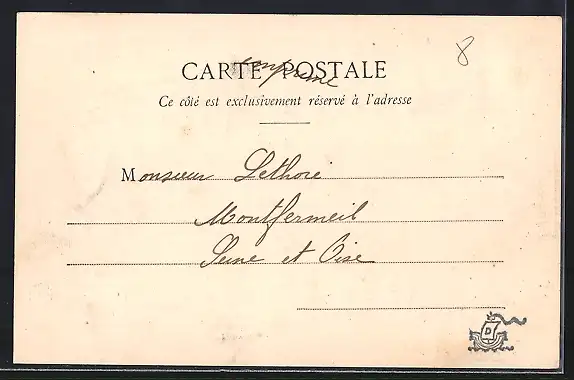 8
CARTE POSTALE
Imprimé
Ce côté est exclusivement réservé à l'adresse
Monsieur Lethoré
Montfermeil
Seine et Oise
D